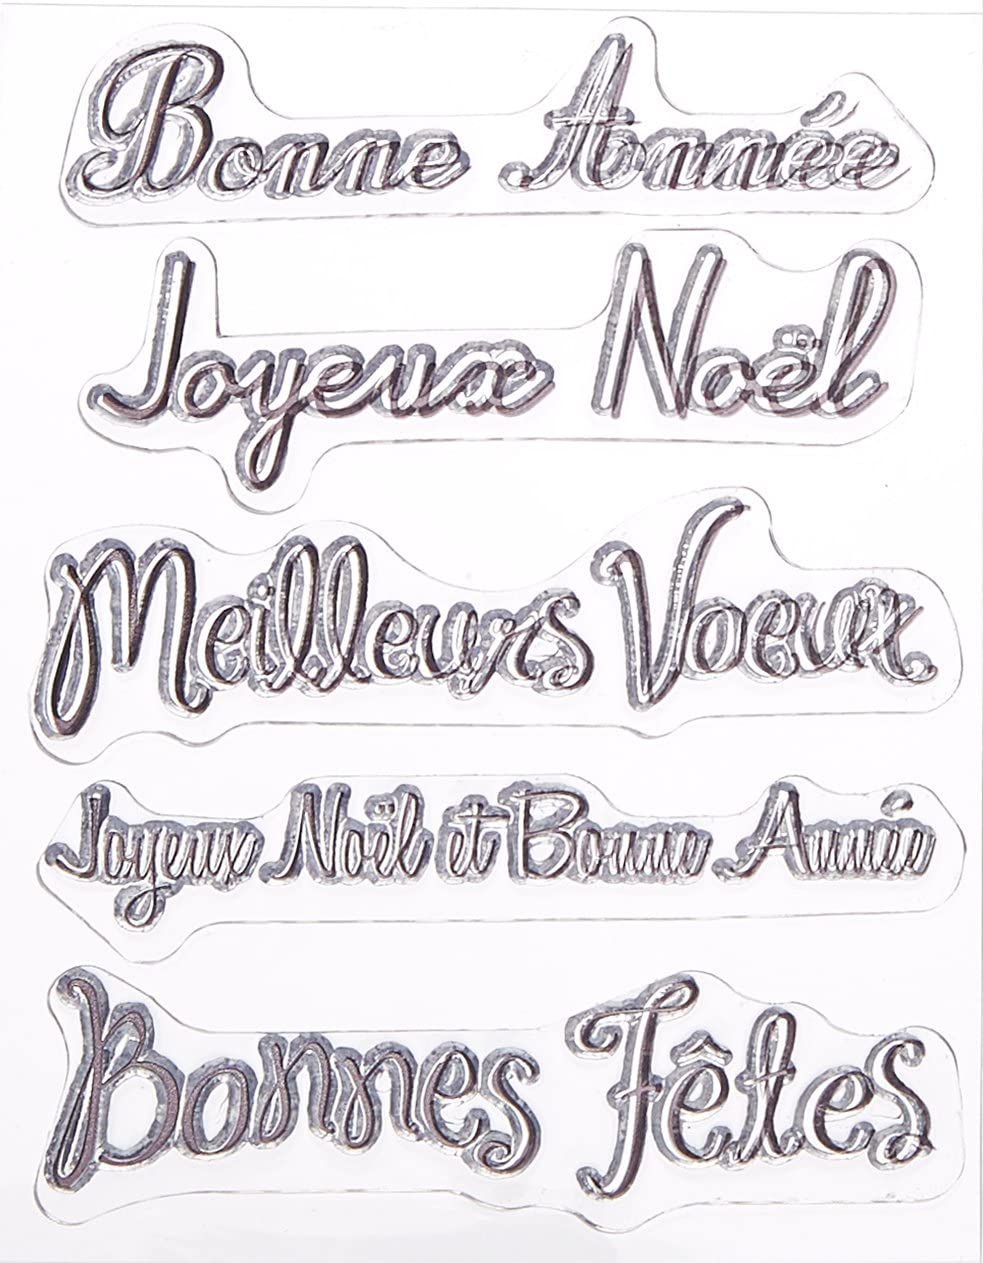 Bonne Année
Joyeux Noël
Meilleurs Voeux
Joyeux Noël et Bonne Année
Bonnes Fêtes